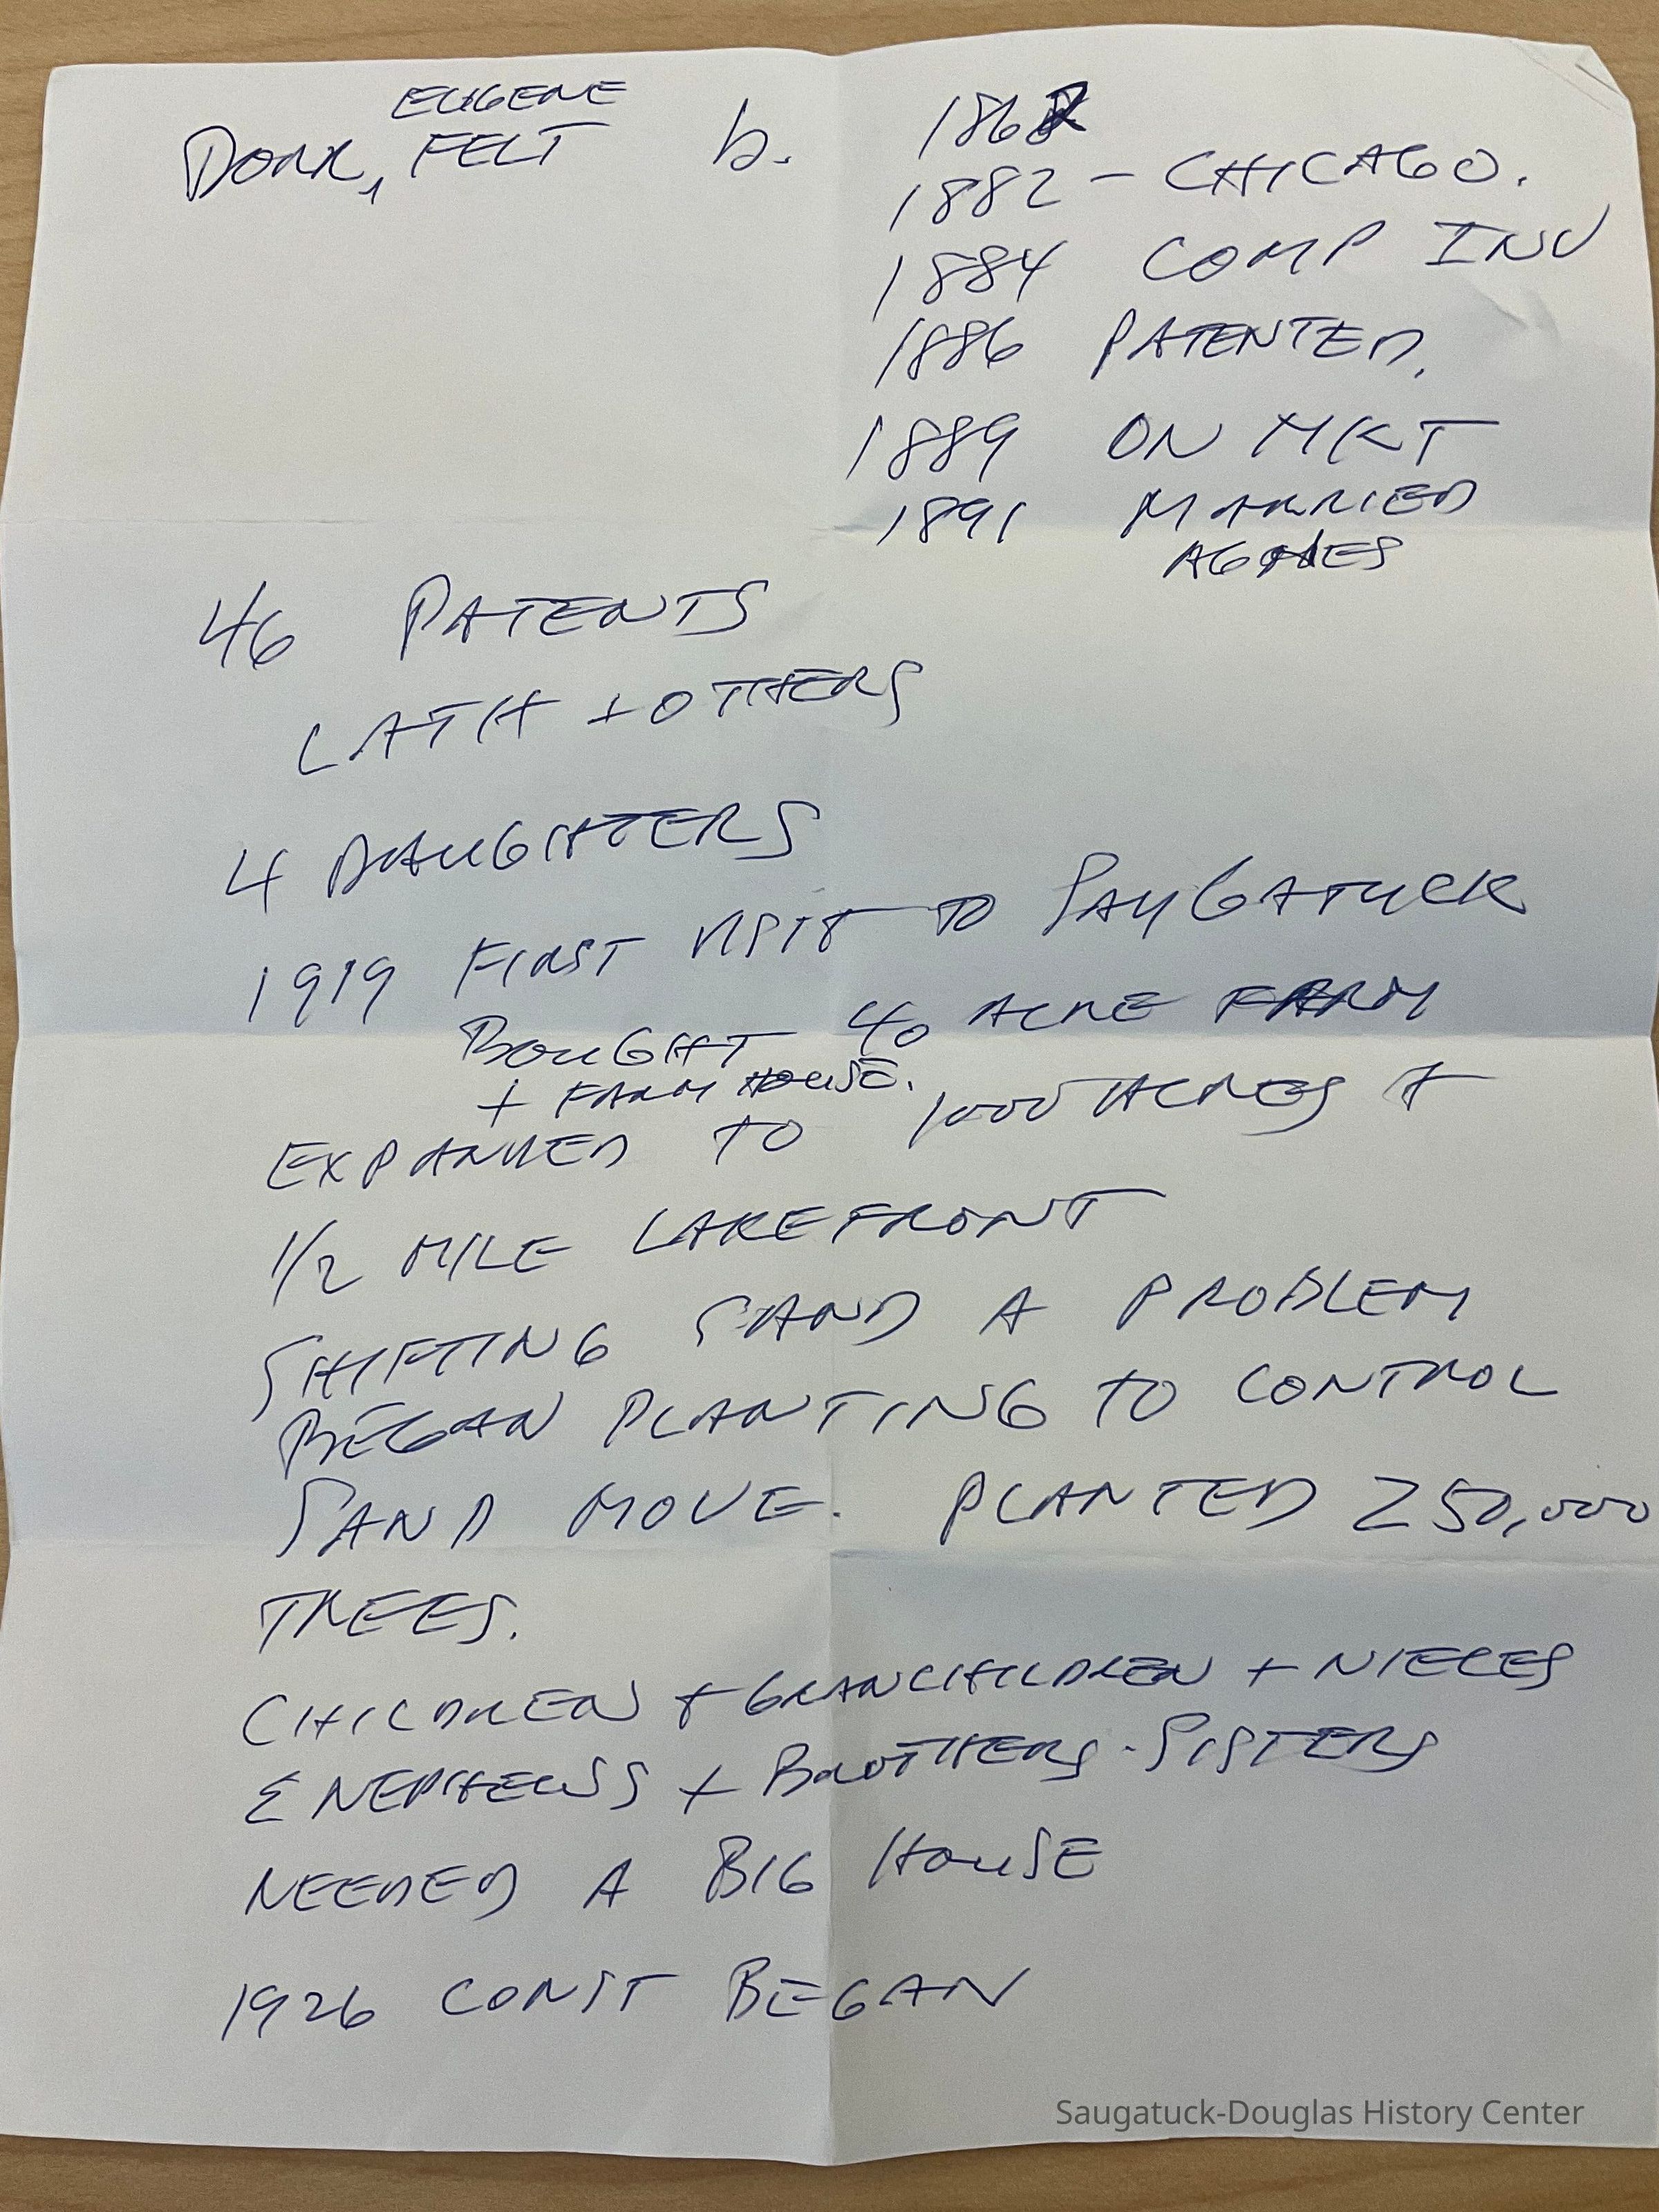 EUGENE
DORR, FELT b. 1862
1882 - CHICAGO.
1884 COMP INV
1886 PATENTED.
1889 ON MKT
1891 MARRIED
AGNES
46 PATENTS
LATH + OTHERS
4 DAUGHTERS
1919 FIRST VISIT TO SAUGATUCK
BOUGHT 40 ACRE FARM
+ FARM HOUSE.
EXPANDED TO 1000 ACRES +
1/2 MILE LAKEFRONT
SHIFTING SAND A PROBLEM
BEGAN PLANTING TO CONTROL
SAND MOVE. PLANTED 250,000
TREES.
CHILDREN + GRANCHILDREN + NIECES
& NEPHEWSS + BROTHERS - SISTERS
NEEDED A BIG HOUSE
1926 CONST BEGAN
Saugatuck-Douglas History Center